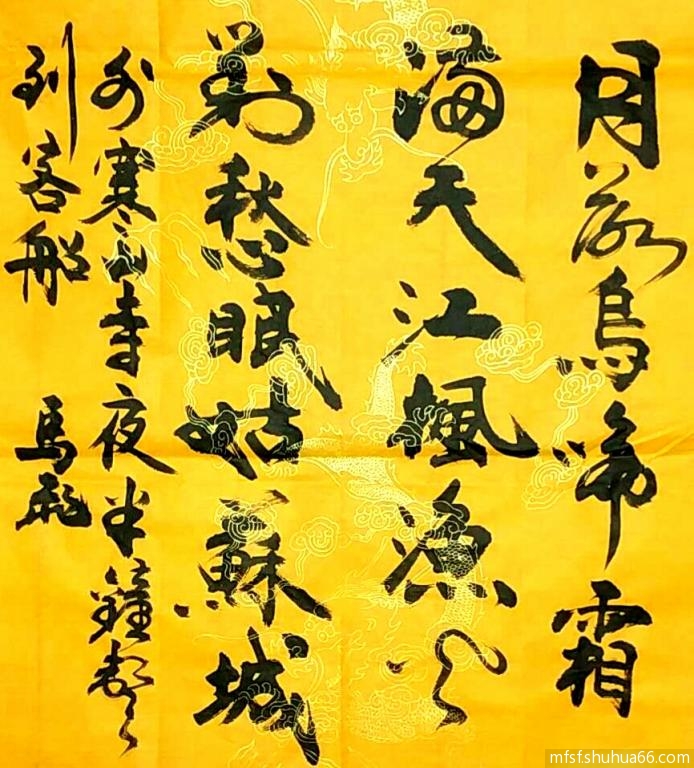 月落烏啼霜
滿天江楓漁火
對愁眠姑蘇城
外寒山寺夜半鐘聲
到客船 馬飛
mfsfshuhua66.com